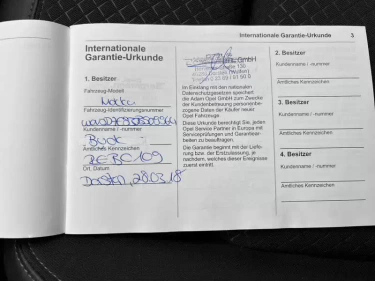 Internationale Garantie-Urkunde 3
Internationale
Garantie-Urkunde
1. Besitzer
Fahrzeug-Modell
Mokka
Fahrzeug-Identifizierungsnummer
Kundenname / -nummer
Buck
Amtliches Kennzeichen
RE BC 109
Ort, Datum
Dorsten, 28.03.18
GmbH
Im Einklang mit den nationalen
Datenschutzgesetzen speichert
die Adam Opel GmbH zum Zwecke
der Kundenbetreuung personenbe-
zogene Daten der Käufer neuer
Opel Fahrzeuge.
Diese Urkunde berechtigt Sie, jeden
Opel Service Partner in Europa mit
Serviceprüfungen und Garantiear-
beiten zu beauftragen.
Die Garantie beginnt mit der Liefe-
rung bzw. der Erstzulassung, je
nachdem, welches dieser Ereignisse
zuerst eintritt.
2. Besitzer
Kundenname / -nummer
Amtliches Kennzeichen
3. Besitzer
Kundenname / -nummer
Amtliches Kennzeichen
4. Besitzer
Kundenname / -nummer
Amtliches Kennzeichen